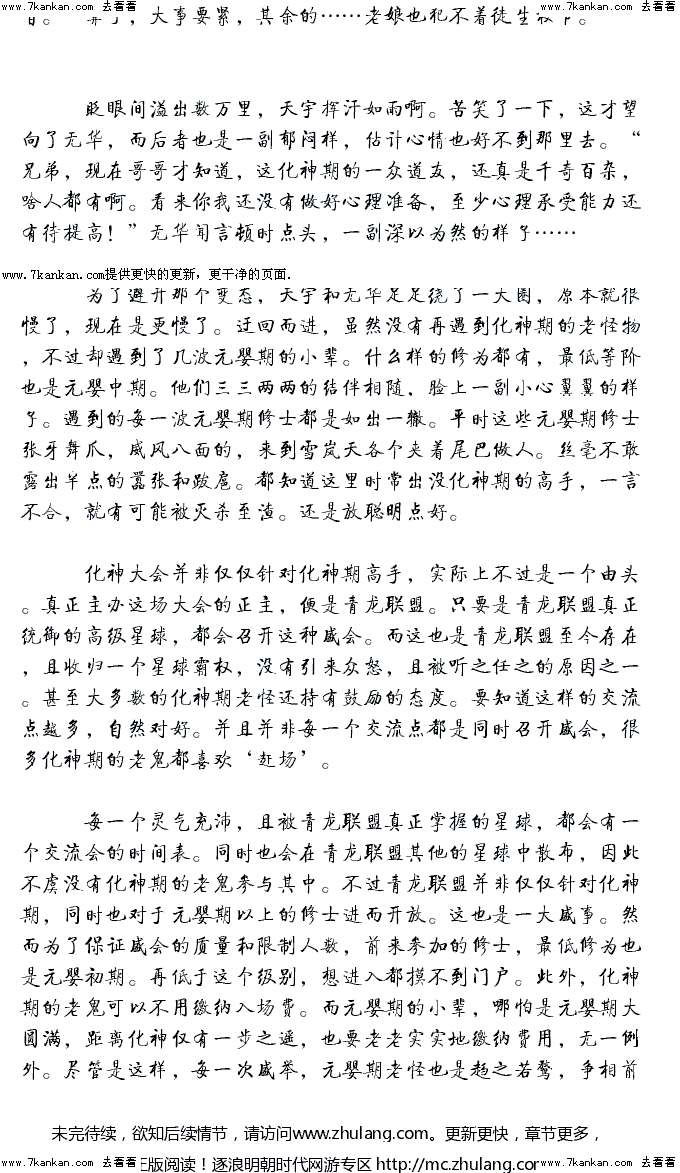 www.7kankan.com 去看看 www.7kankan.com 去看看 www.7kankan.com 去看看 www.7kankan.com 去看看
大事要紧，其余的……老娘也犯不着徒生
眨眼间溢出数万里，天宇挥汗如雨啊。苦笑了一下，这才望
向了无华，而后者也是一副郁闷样，估计心情也好不到那里去。“
兄弟，现在哥哥才知道，这化神期的一众道友，还真是千奇百杂，
啥人都有啊。看来你我还没有做好心理准备，至少心理承受能力还
有待提高！”无华闻言顿时点头，一副深以为然的样子……
www.7kankan.com提供更快的更新，更干净的页面.
为了避开那个变态，天宇和无华足足绕了一大圈，原本就很
慢了，现在是更慢了。迂回而进，虽然没有再遇到化神期的老怪物
，不过却遇到了几波元婴期的小辈。什么样的修为都有，最低等阶
也是元婴中期。他们三三两两的结伴相随，脸上一副小心翼翼的样
子。遇到的每一波元婴期修士都是如出一辙。平时这些元婴期修士
张牙舞爪，威风八面的，来到雪岚天各个夹着尾巴做人。丝毫不敢
露出半点的嚣张和跋扈。都知道这里时常出没化神期的高手，一言
不合，就有可能被灭杀至渣。还是放聪明点好。
化神大会并非仅仅针对化神期高手，实际上不过是一个由头
。真正主办这场大会的正主，便是青龙联盟。只要是青龙联盟真正
统御的高级星球，都会召开这种盛会。而这也是青龙联盟至今存在
，且收归一个星球霸权，没有引来众怒，且被听之任之的原因之一
。甚至大多数的化神期老怪还持有鼓励的态度。要知道这样的交流
点越多，自然对好。并且并非每一个交流点都是同时召开盛会，很
多化神期的老鬼都喜欢‘赶场’。
每一个灵气充沛，且被青龙联盟真正掌握的星球，都会有一
个交流会的时间表。同时也会在青龙联盟其他的星球中散布，因此
不虞没有化神期的老鬼参与其中。不过青龙联盟并非仅仅针对化神
期，同时也对于元婴期以上的修士进而开放。这也是一大盛事。然
而为了保证盛会的质量和限制人数，前来参加的修士，最低修为也
是元婴初期。再低于这个级别，想进入都摸不到门户。此外，化神
期的老鬼可以不用缴纳入场费。而元婴期的小辈，哪怕是元婴期大
圆满，距离化神仅有一步之遥，也要老老实实地缴纳费用，无一例
外。尽管是这样，每一次盛举，元婴期老怪也是趋之若鹜，争相前
未完待续，欲知后续情节，请访问www.zhulang.com。更新更快，章节更多，
www.7kankan.com 去看看 正版阅读！逐浪明朝时代网游专区 http://mc.zhulang.com www.7kankan.com 去看看